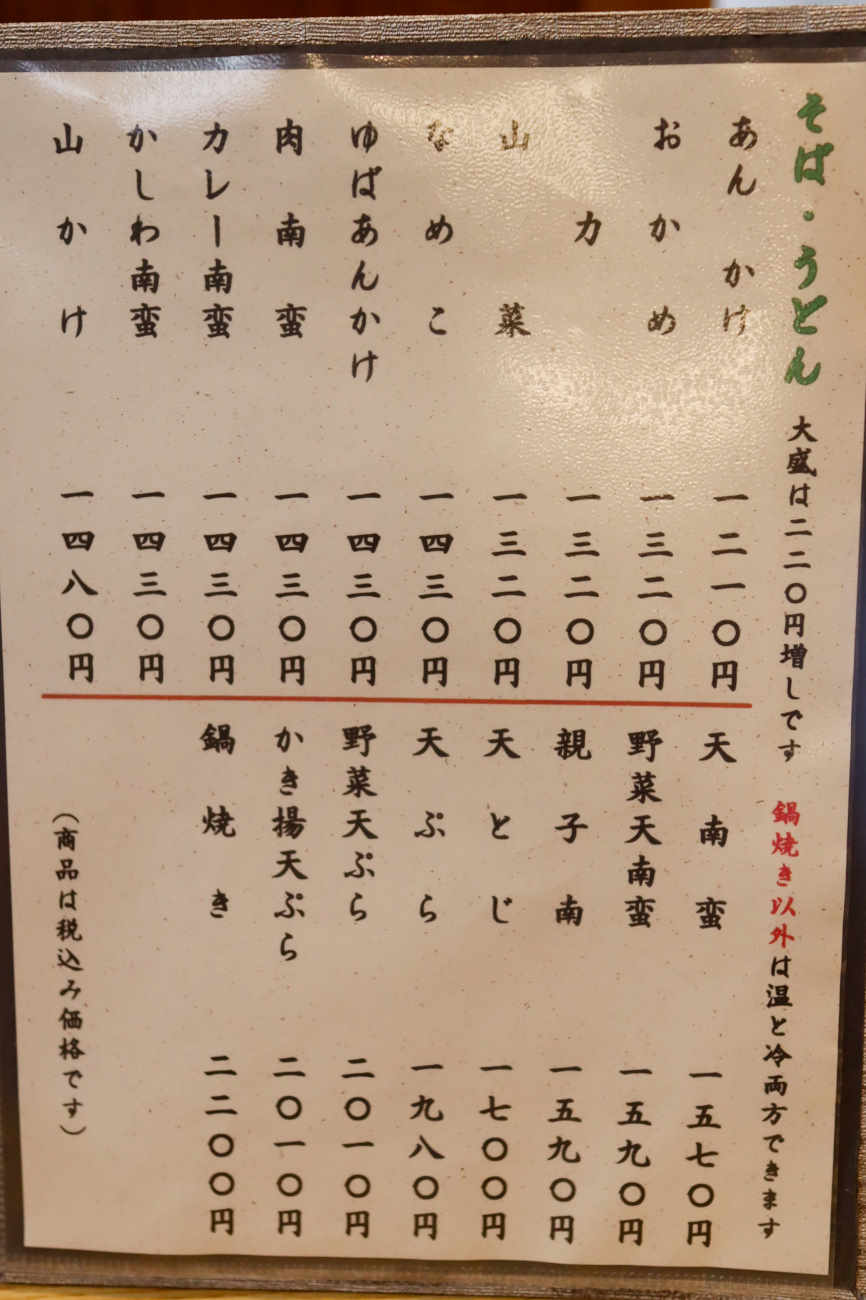 そば・うどん 大盛は二二〇円増しです 鍋焼き以外は温と冷両方できます
あんかけ 一二一〇円
おかめ 一三二〇円
力 一三二〇円
山菜 一三二〇円
なめこ 一四三〇円
ゆばあんかけ 一四三〇円
肉南蛮 一四三〇円
カレー南蛮 一四三〇円
かしわ南蛮 一四三〇円
山かけ 一四八〇円
天南蛮 一五七〇円
野菜天南蛮 一五九〇円
親子南 一五九〇円
天とじ 一七〇〇円
天ぷら 一九八〇円
野菜天ぷら 二〇一〇円
かき揚天ぷら 二〇一〇円
鍋焼き 二二〇〇円
（商品は税込み価格です）